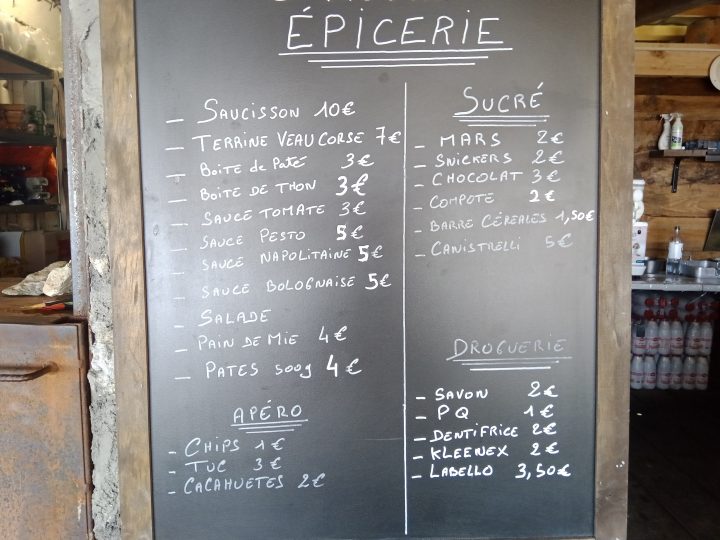 ÉPICERIE
_ SAUCISSON 10€
_ TERRINE VEAU CORSE 7€
_ BOITE de PATÉ 3€
_ BOITE DE THON 3€
_ SAUCE TOMATE 3€
_ SAUCE PESTO 5€
_ SAUCE NAPOLITAINE 5€
_ SAUCE BOLOGNAISE 5€
_ SALADE
_ PAIN DE MIE 4€
_ PATES 500g 4€
APÉRO
_ CHIPS 1€
_ TUC 3€
_ CACAHUETES 2€
SUCRÉ
_ MARS 2€
_ SNICKERS 2€
_ CHOCOLAT 3€
_ COMPOTE 2€
_ BARRE CÉREALES 1,50€
_ CANISTRELLI 5€
DROGUERIE
_ SAVON 2€
_ PQ 1€
_ DENTIFRICE 2€
_ KLEENEX 2€
_ LABELLO 3,50€